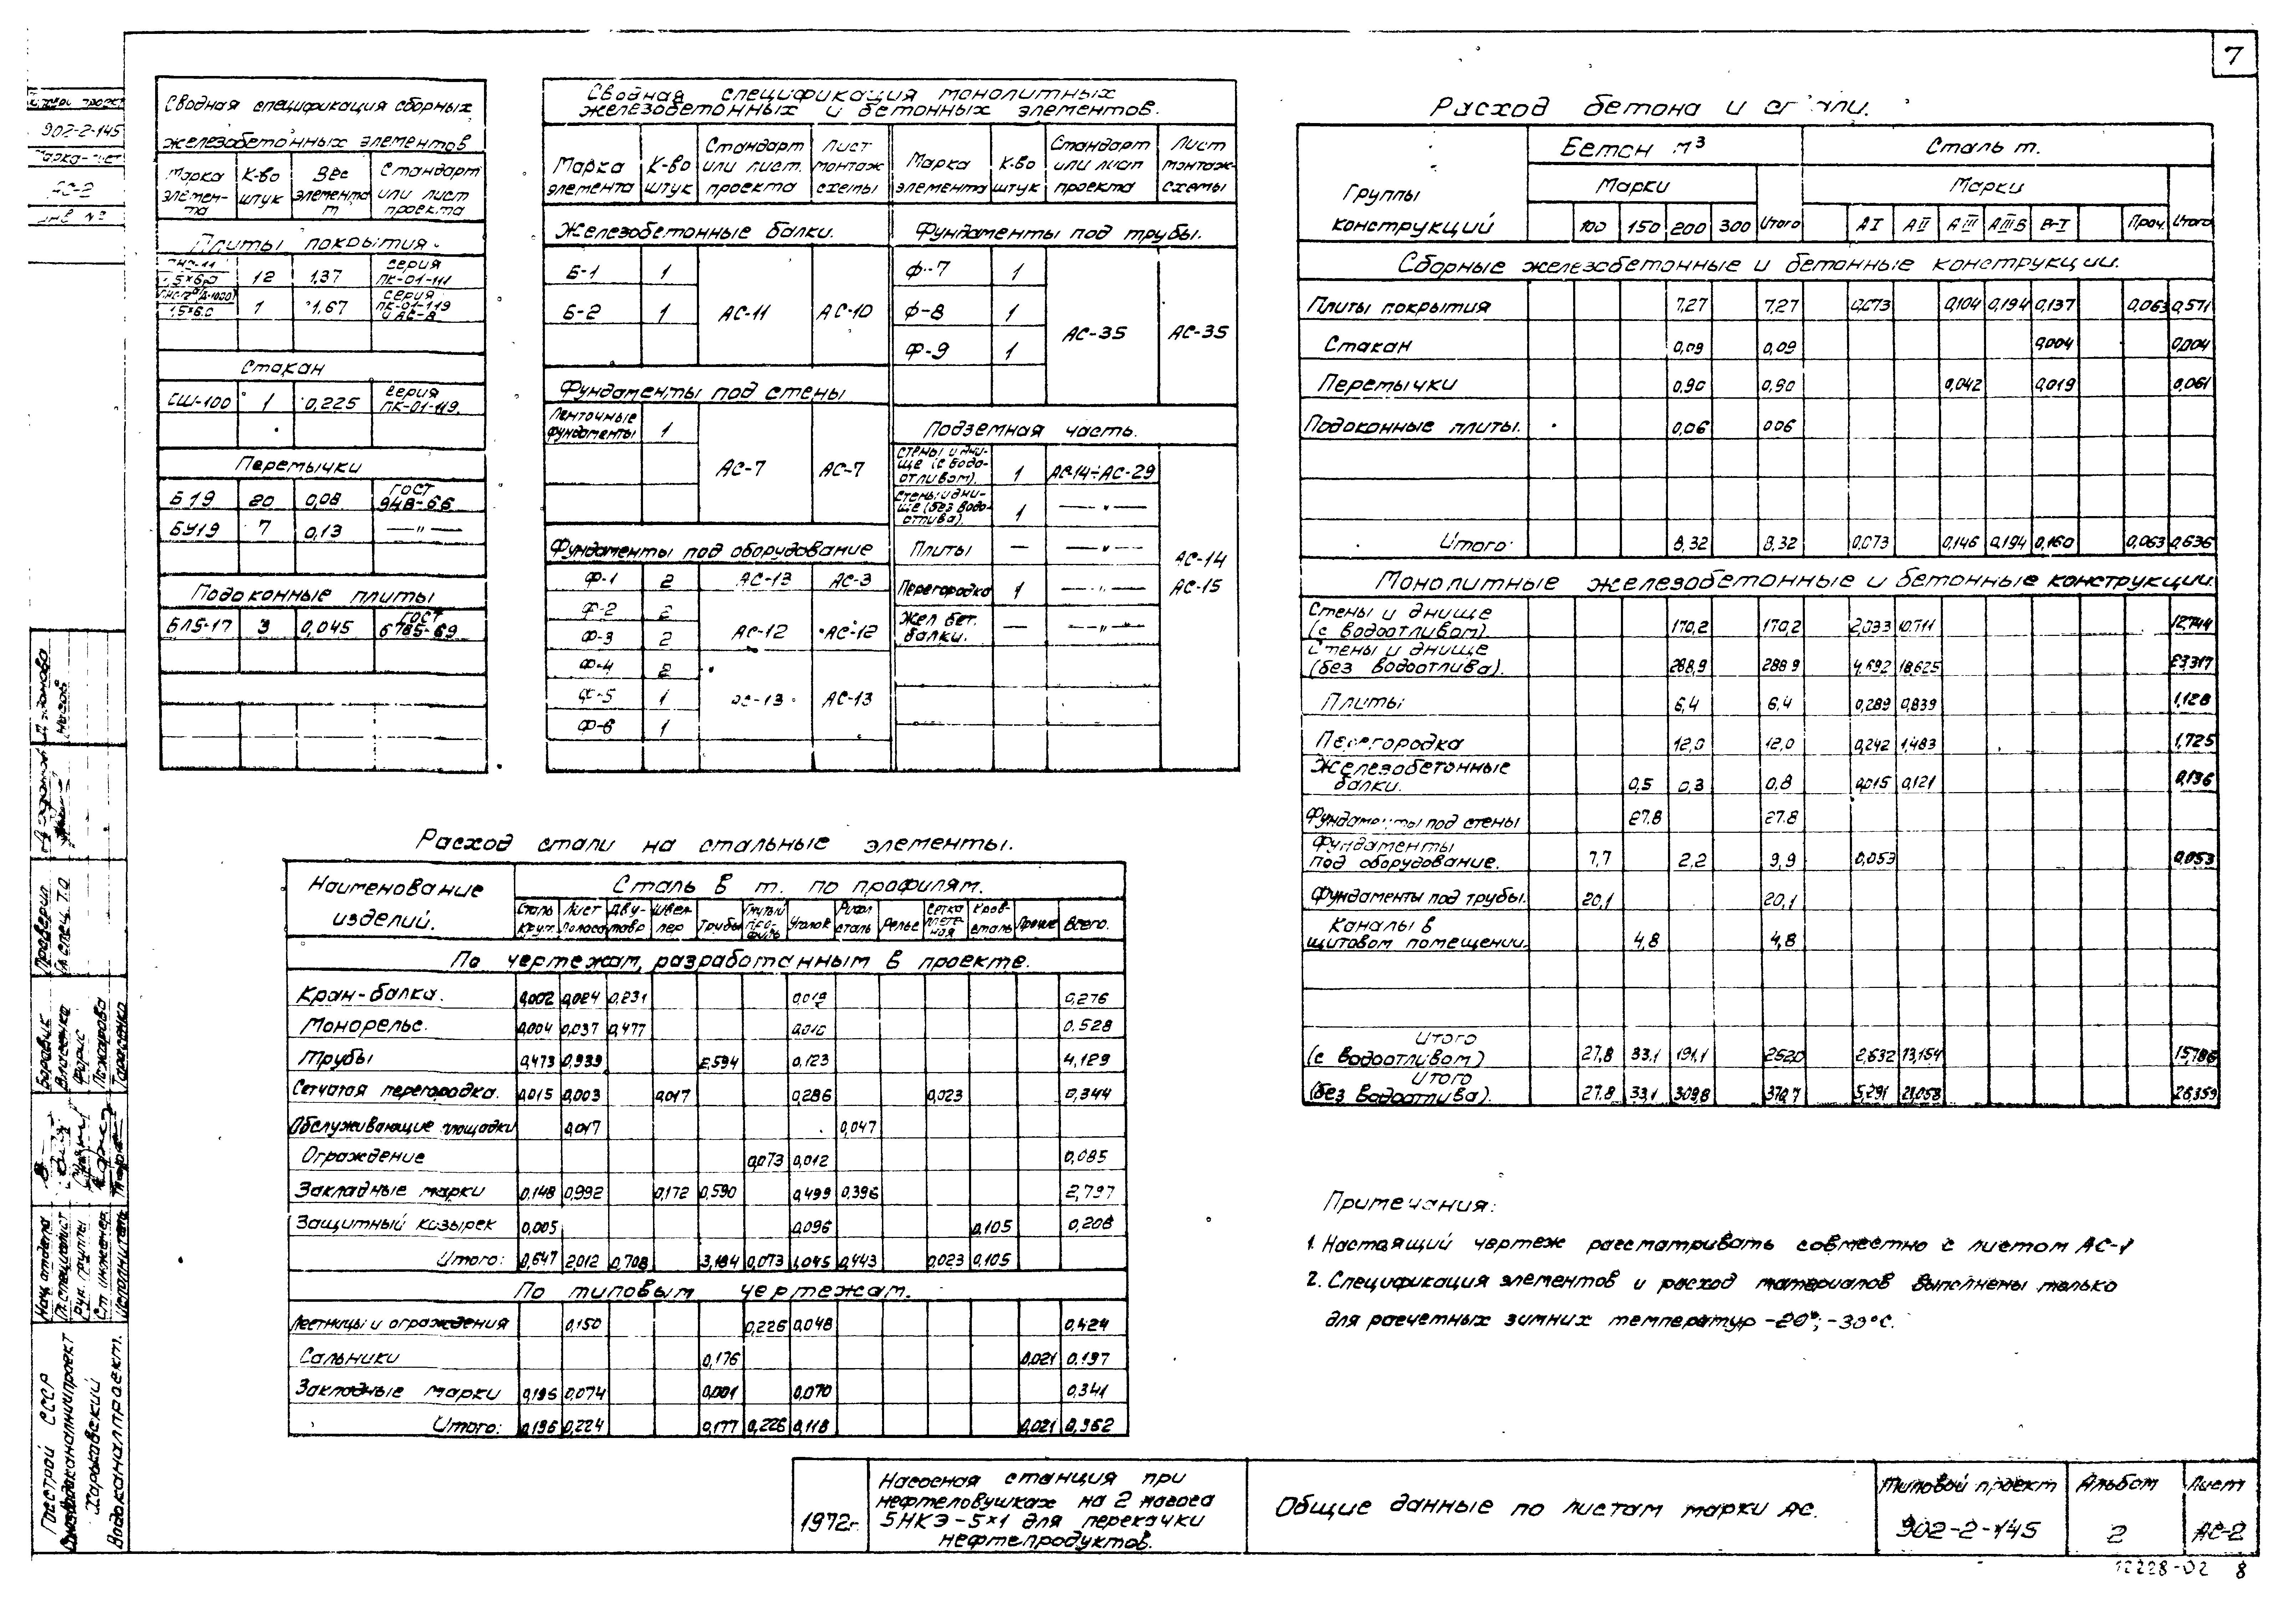 7
902-2-145
АС-2
Сводная спецификация сборных
железобетонных элементов
Марка элемен-та К-во штук Вес элемента т Стандарт или лист проекта
Плиты покрытия.
1,5×6,0 12 1,37 серия ПК-01-111
1,5×6,0 1 1,67 серия ПК-01-119 и АС-8
Стакан
СШ-100 1 0,225 серия ПК-01-119
Перемычки
Б19 20 0,08 ГОСТ 948-66
БУ19 7 0,13 —"—
Подоконные плиты
БЛ5-17 3 0,045 ГОСТ 6785-69
Сводная спецификация монолитных
железобетонных и бетонных элементов.
Марка элемента К-во штук Стандарт или лист. проекта Лист монтаж схемы Марка элемента К-во штук Стандарт или лист проекта Лист монтаж-схемы
Железобетонные балки. Фундаменты под трубы.
Б-1 1 Ф-7 1
Б-2 1 АС-11 АС-10 Ф-8 1
Ф-9 1 АС-35 АС-35
Фундаменты под стены
Ленточные фундаменты 1 АС-7 АС-7
Подземная часть.
Стены и дни-ще (с водо-отливом). 1 АС-14÷АС-29
Стены и дни-ще (без водо-отлива). 1 —"—
Плиты — —"—
Перегородка 1 —"—
Жел бет. балки. — —"—
АС-14
АС-15
Фундаменты под оборудование
Ф-1 2 АС-13 АС-3
Ф-2 2
Ф-3 2 АС-12 АС-12
Ф-4 2
Ф-5 1 АС-13 АС-13
Ф-6 1
Расход бетона и стали.
Группы конструкций Бетон м³ Сталь т.
Марки Марки
100 150 200 300 Итого АI АII АIII АIIIв В-I Проч. Итого
Сборные железобетонные и бетонные конструкции.
Плиты покрытия 7,27 7,27 0,073 0,104 0,194 0,137 0,063 0,571
Стакан 0,09 0,09 0,004 0,004
Перемычки 0,90 0,90 0,042 0,019 0,061
Подоконные плиты. 0,06 0,06
Итого: 8,32 8,32 0,073 0,146 0,194 0,160 0,063 0,636
Монолитные железобетонные и бетонные конструкции.
Стены и днище (с водоотливом). 170,2 170,2 2,033 10,711 12,744
Стены и днище (без водоотлива). 288,9 288,9 4,692 18,625 23,317
Плиты 6,4 6,4 0,289 0,839 1,128
Перегородка 12,0 12,0 0,242 1,483 1,725
Железобетонные балки. 0,5 0,3 0,8 0,015 0,121 0,136
Фундаменты под стены 27.8 27.8
Фундаменты под оборудование. 7,7 2,2 9,9 0,053 0,053
Фундаменты под трубы. 20,1 20,1
Каналы в щитовом помещении. 4,8 4,8
Итого (с водоотливом) 27,8 33,1 191,1 252,0 2,632 13,154 15,786
Итого (без водоотлива). 27.8 33,1 309,8 370,7 5,291 21,058 26,359
Расход стали на стальные элементы.
Наименование изделий. Сталь в т. по профилям.
Сталь кругл. Лист полоса Дву-тавр Швел-лер Трубы Гнутый про-филь Уголок Рифл сталь Рельс Сетка плете-ная Кров-сталь Прочие Всего.
По чертежам, разработанным в проекте.
Кран-балка. 0,002 0,024 0,231 0,019 0,276
Монорельс. 0,004 0,037 0,477 0,010 0.528
Трубы 0,473 0,939 2,594 0,123 4,129
Сетчатая перегородка. 0,015 0,003 0,017 0,286 0,023 0,344
Обслуживающие площадки 0,017 0,047
Ограждение 0,073 0,012 0,085
Закладные марки 0,148 0,992 0,172 0,590 0,499 0,396 2,797
Защитный козырек 0,005 0,096 0,105 0,206
Итого: 0,647 2,012 0,708 3,184 0,073 1,045 0,443 0,023 0,105
По типовым чертежам.
Лестницы и ограждения 0,150 0,226 0,048 0,424
Сальники 0,176 0,021 0.197
Закладные марки 0,196 0,074 0,001 0,070 0,341
Итого: 0,196 0,224 0,177 0,226 0,118 0,021 0,962
Примечания:
1. Настоящий чертеж рассматривать совместно с листом АС-1
2. Спецификация элементов и расход материалов выполнены только
для расчетных зимних температур -20°; -30°С.
1972г.
Насосная станция при
нефтеловушках на 2 насоса
5НКЭ-5×1 для перекачки
нефтепродуктов.
Общие данные по листам марки АС.
Типовой проект
902-2-145
Альбом
2
Лист
АС-2
12228-02 8
Госстрой СССР
Союзводоканалниипроект
Харьковский
Водоканалпроект.
Нач. отдела Боровик
Гл. специалист Власенко
Рук. группы
Ст. инженер. Пожарова
Исполнитель Тарасенко
Проверил
Гл. спец. ТО